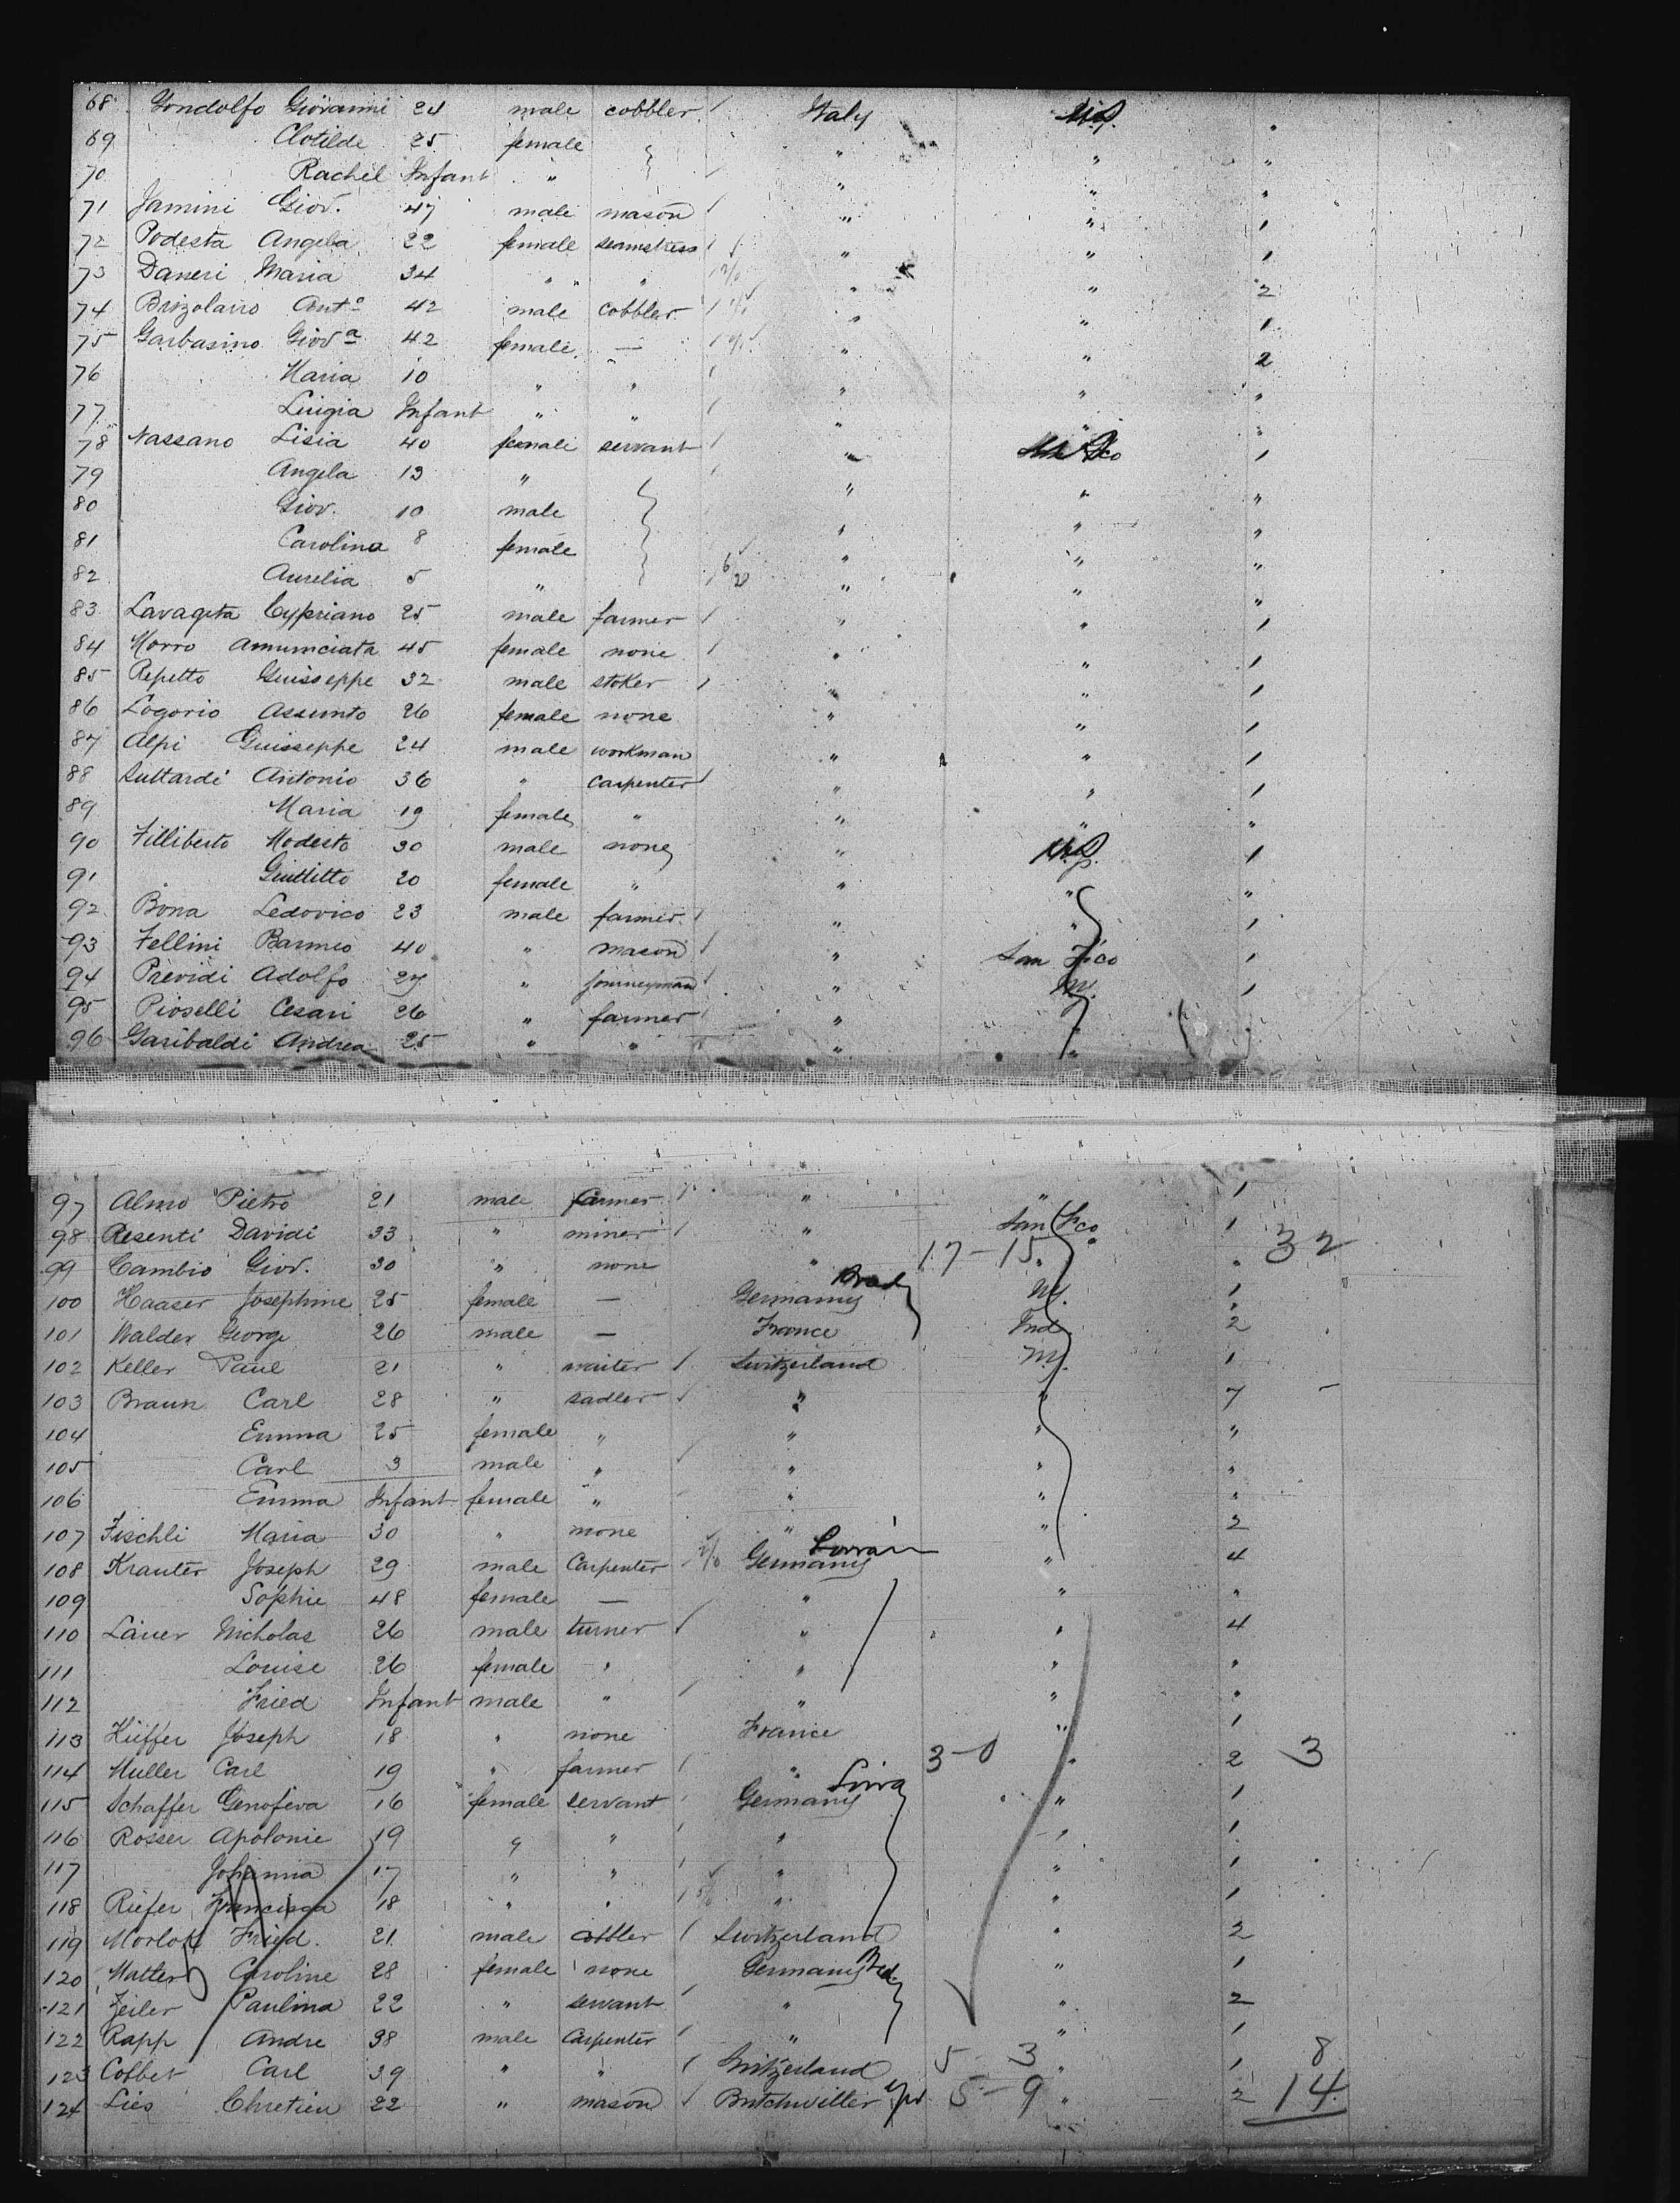 68 Gondolfo Giovanni 24 male cobbler / Italy N.Y. "
69 Clotilde 25 female " " "
70 Rachel Infant " " " "
71 Jamini Giov. 47 male mason / " " 1
72 Podesta Angela 22 female seamstress / " " 1
73 Daneri Maria 34 " " " " 2
74 Brizolairo Anto 42 male cobbler / " " 1
75 Garbasino Giova 42 female — / " " 2
76 Maria 10 " " / " " "
77 Luigia Infant " " / " " "
78 Nassano Lisia 40 female servant / " 1
79 Angela 13 " " " "
80 Giov. 10 male " " "
81 Carolina 8 female " " "
82 Aurelia 5 " 6/28 " " "
83 Lavageta Cypriano 25 male farmer / " " 1
84 Morro Amunciata 45 female none / " " 1
85 Repetto Guisseppe 32 male stoker / " " 1
86 Logorio Assunto 26 female none " " 1
87 Alpi Guisseppe 24 male workman " " 1
88 Suttardi Antonio 36 " carpenter / " " 1
89 Maria 19 female " " " "
90 Filliberto Modesto 30 male none " N.Y. 1
91 Giultitto 20 female " " " "
92 Bona Ledovico 23 male farmer / " " 1
93 Fellini Barmeo 40 " mason / " San Fco 1
94 Prévidi Adolfo 27 " journeyman / " N.Y. 1
95 Pioselli Cesari 26 " farmer / " "
96 Garibaldi Andrea 25 " " " "
97 Almo Pietro 21 male farmer / " " 1
98 Resenti Davidi 33 " miner / " San Fco 1
99 Cambio Giov. 30 " none " 17-15 " " 32
100 Haaser Josephine 25 female — Germany N.Y. 1
101 Walder George 26 male — France Ind. 2
102 Keller Paul 21 " waiter / Switzerland N.Y. 1
103 Braun Carl 28 " sadler / " " 7 -
104 Emma 25 female " " " "
105 Carl 3 male " / " " "
106 Emma Infant female " " " "
107 Fischli Maria 30 " none " " 2
108 Krauter Joseph 29 male Carpenter Germany Lorrain " 4
109 Sophie 48 female — " " "
110 Lauer Nicholas 26 male turner / " " 4
111 Louise 26 female " " " "
112 Fried Infant male " / " " "
113 Küffer Joseph 18 " none France " 1
114 Muller Carl 19 " farmer / " 3-0 " 2 3
115 Schaffer Genofeva 16 female servant / Germany " 1
116 Rosser Apolonie 19 " " / " " 1
117 Johanna 17 " " / " " 1
118 Riefer Francisca 18 " " / " " 1
119 Morlok Fried. 21 male cobbler / Switzerland " 2
120 Matter Caroline 28 female none Germany " 1
121 Zeiler Paulina 22 " servant / " " 2
122 Rapp Andre 38 male Carpenter / " " 1
123 Cobbet Carl 39 " " / Switzerland 5 3 " 1 8
124 Lies Chretien 22 " mason / 5-9 " 2 14